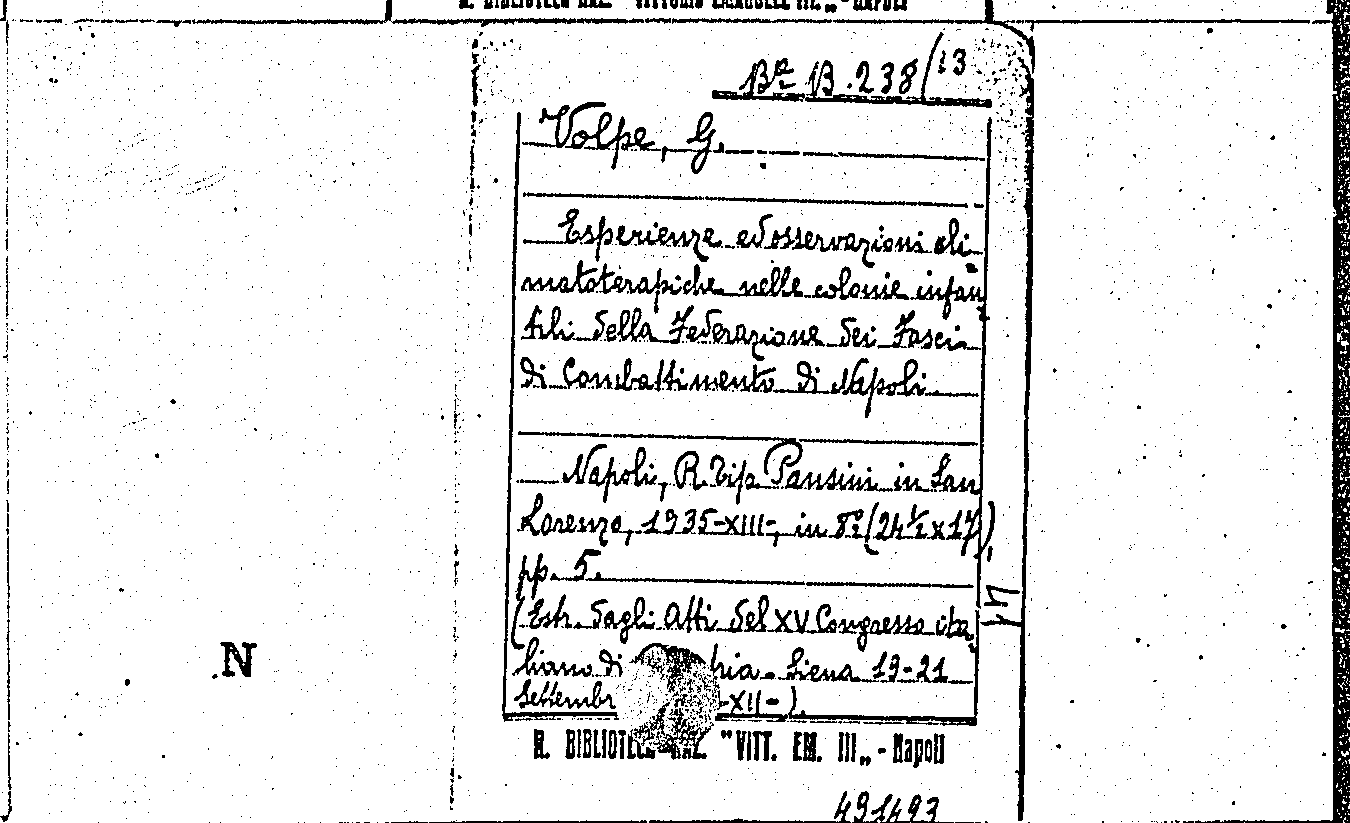 R. BIBLIOTECA NAZ. "VITTORIO EMANUELE III„ - NAPOLI
Bª B. 238/13
Volpe, G.
Esperienze ed osservazioni cli-
matoterapiche nelle colonie infan-
tili della Federazione dei Fasci
di Combattimento di Napoli.
Napoli, R. Tip. Pansini in San
Lorenzo, 1935-XIII-, in 8º (24½x17),
pp. 5.
(Estr. dagli Atti del XV Congresso ita-
liano di
hia. Siena 19-21
Settembr
-XII-).
R. BIBLIOTECA NAZ. "VITT. EM. III„ - Napoli
491493
N